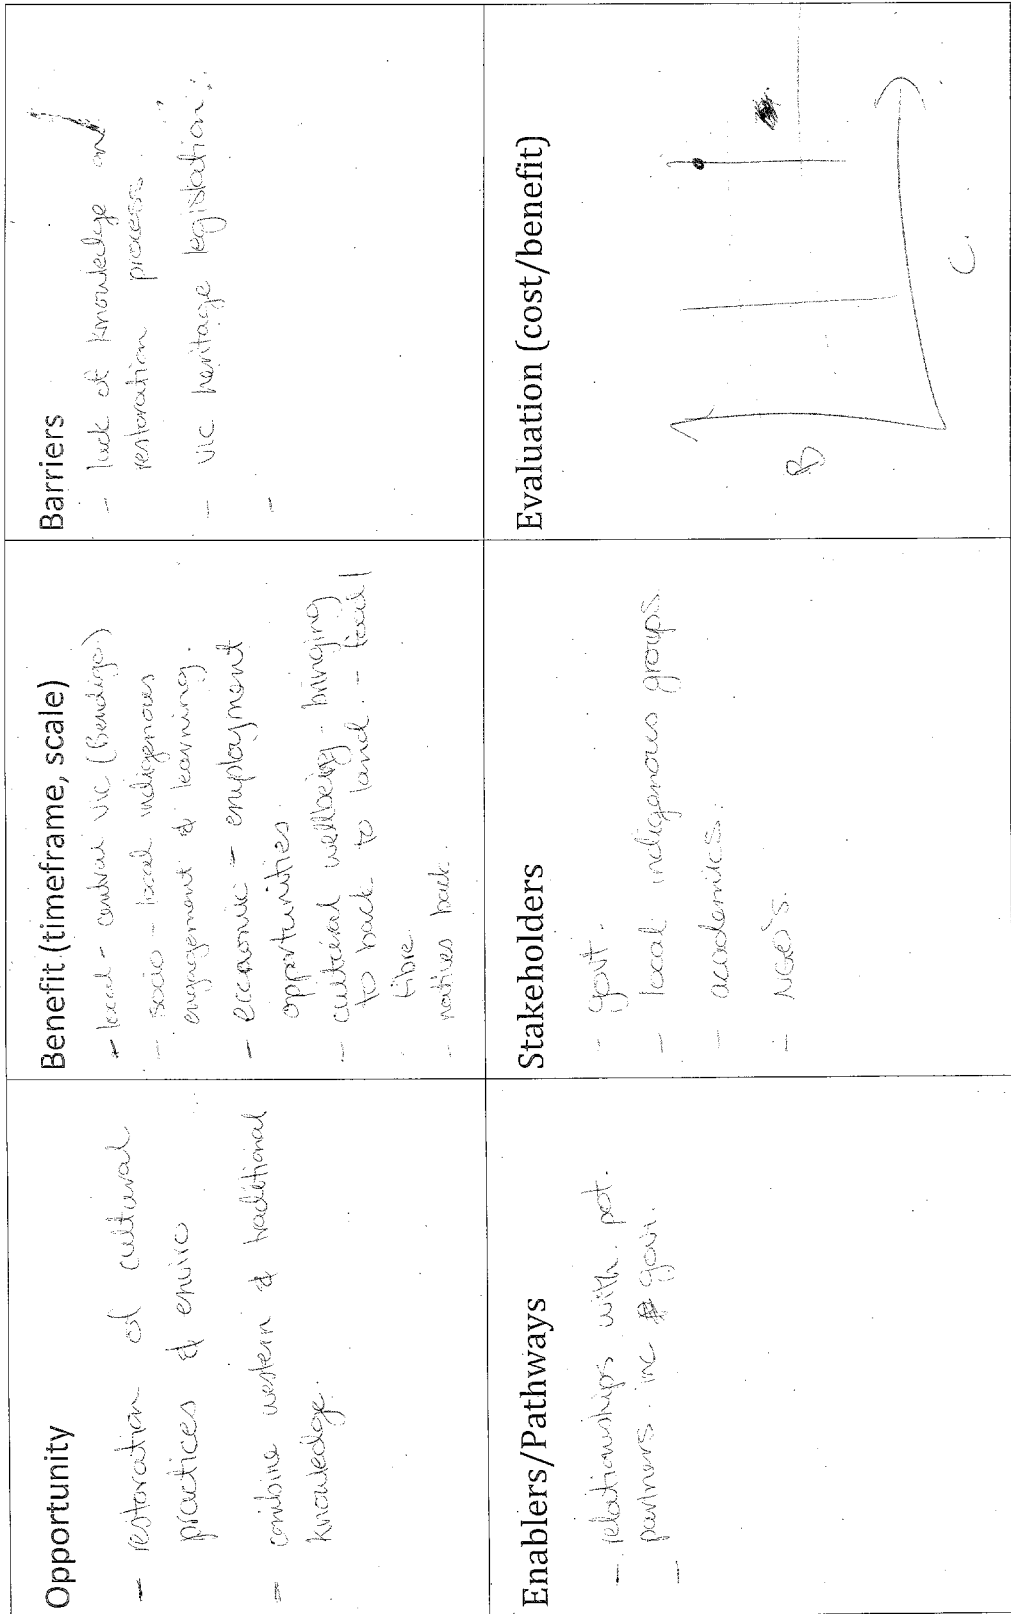 Opportunity
- restoration of cultural
practices & enviro
- combine western & traditional
knowledge.
Benefit (timeframe, scale)
- local - central vic (Bendigo)
- socio - local indigenous
engagement & learning.
- economic - employment
opportunities.
- cultural wellbeing - bringing
to back to land. - food /
fibre.
- natives back.
Barriers
- lack of knowledge on
restoration process.
- vic heritage legislation.
-
Enablers/Pathways
- relationships with pot.
partners. inc govn.
-
Stakeholders
- govt.
- local indigenous groups.
- academics.
- NGO's.
Evaluation (cost/benefit)
B
C.